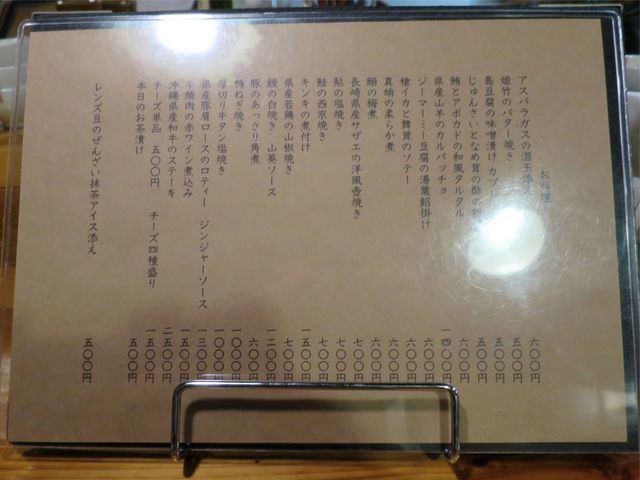 お料理
アスパラガスの温玉添え 六〇〇円
姫竹のバター焼き 五〇〇円
島豆腐の味噌漬け 五〇〇円
じゅんさいとなめ茸の酢の物 五〇〇円
鮪とアボカドの和風タルタル 六〇〇円
県産山羊のカルパッチョ 一四〇〇円
ジーマーミー豆腐の湯葉餡掛け 六〇〇円
槍イカと舞茸のソテー 六〇〇円
真蛸の柔らか煮 六〇〇円
鰯の梅煮 六〇〇円
長崎県産サザエの洋風壺焼き 七〇〇円
鮎の塩焼き 七〇〇円
鮭の西京焼き 七〇〇円
キンキの煮付け 一五〇〇円
県産若鶏の山椒焼き 七〇〇円
鰻の白焼き 山葵ソース 一二〇〇円
豚のあっさり角煮 六〇〇円
鴨ねぎ焼き 一〇〇〇円
厚切り牛タン塩焼き 一〇〇〇円
県産豚肩ロースのロティー ジンジャーソース 一三〇〇円
牛頬肉の赤ワイン煮込み 一五〇〇円
沖縄県産和牛のステーキ 二五〇〇円
チーズ単品 五〇〇円 チーズ四種盛り 一五〇〇円
本日のお茶漬け 五〇〇円
レンズ豆のぜんざい抹茶アイス添え 五〇〇円